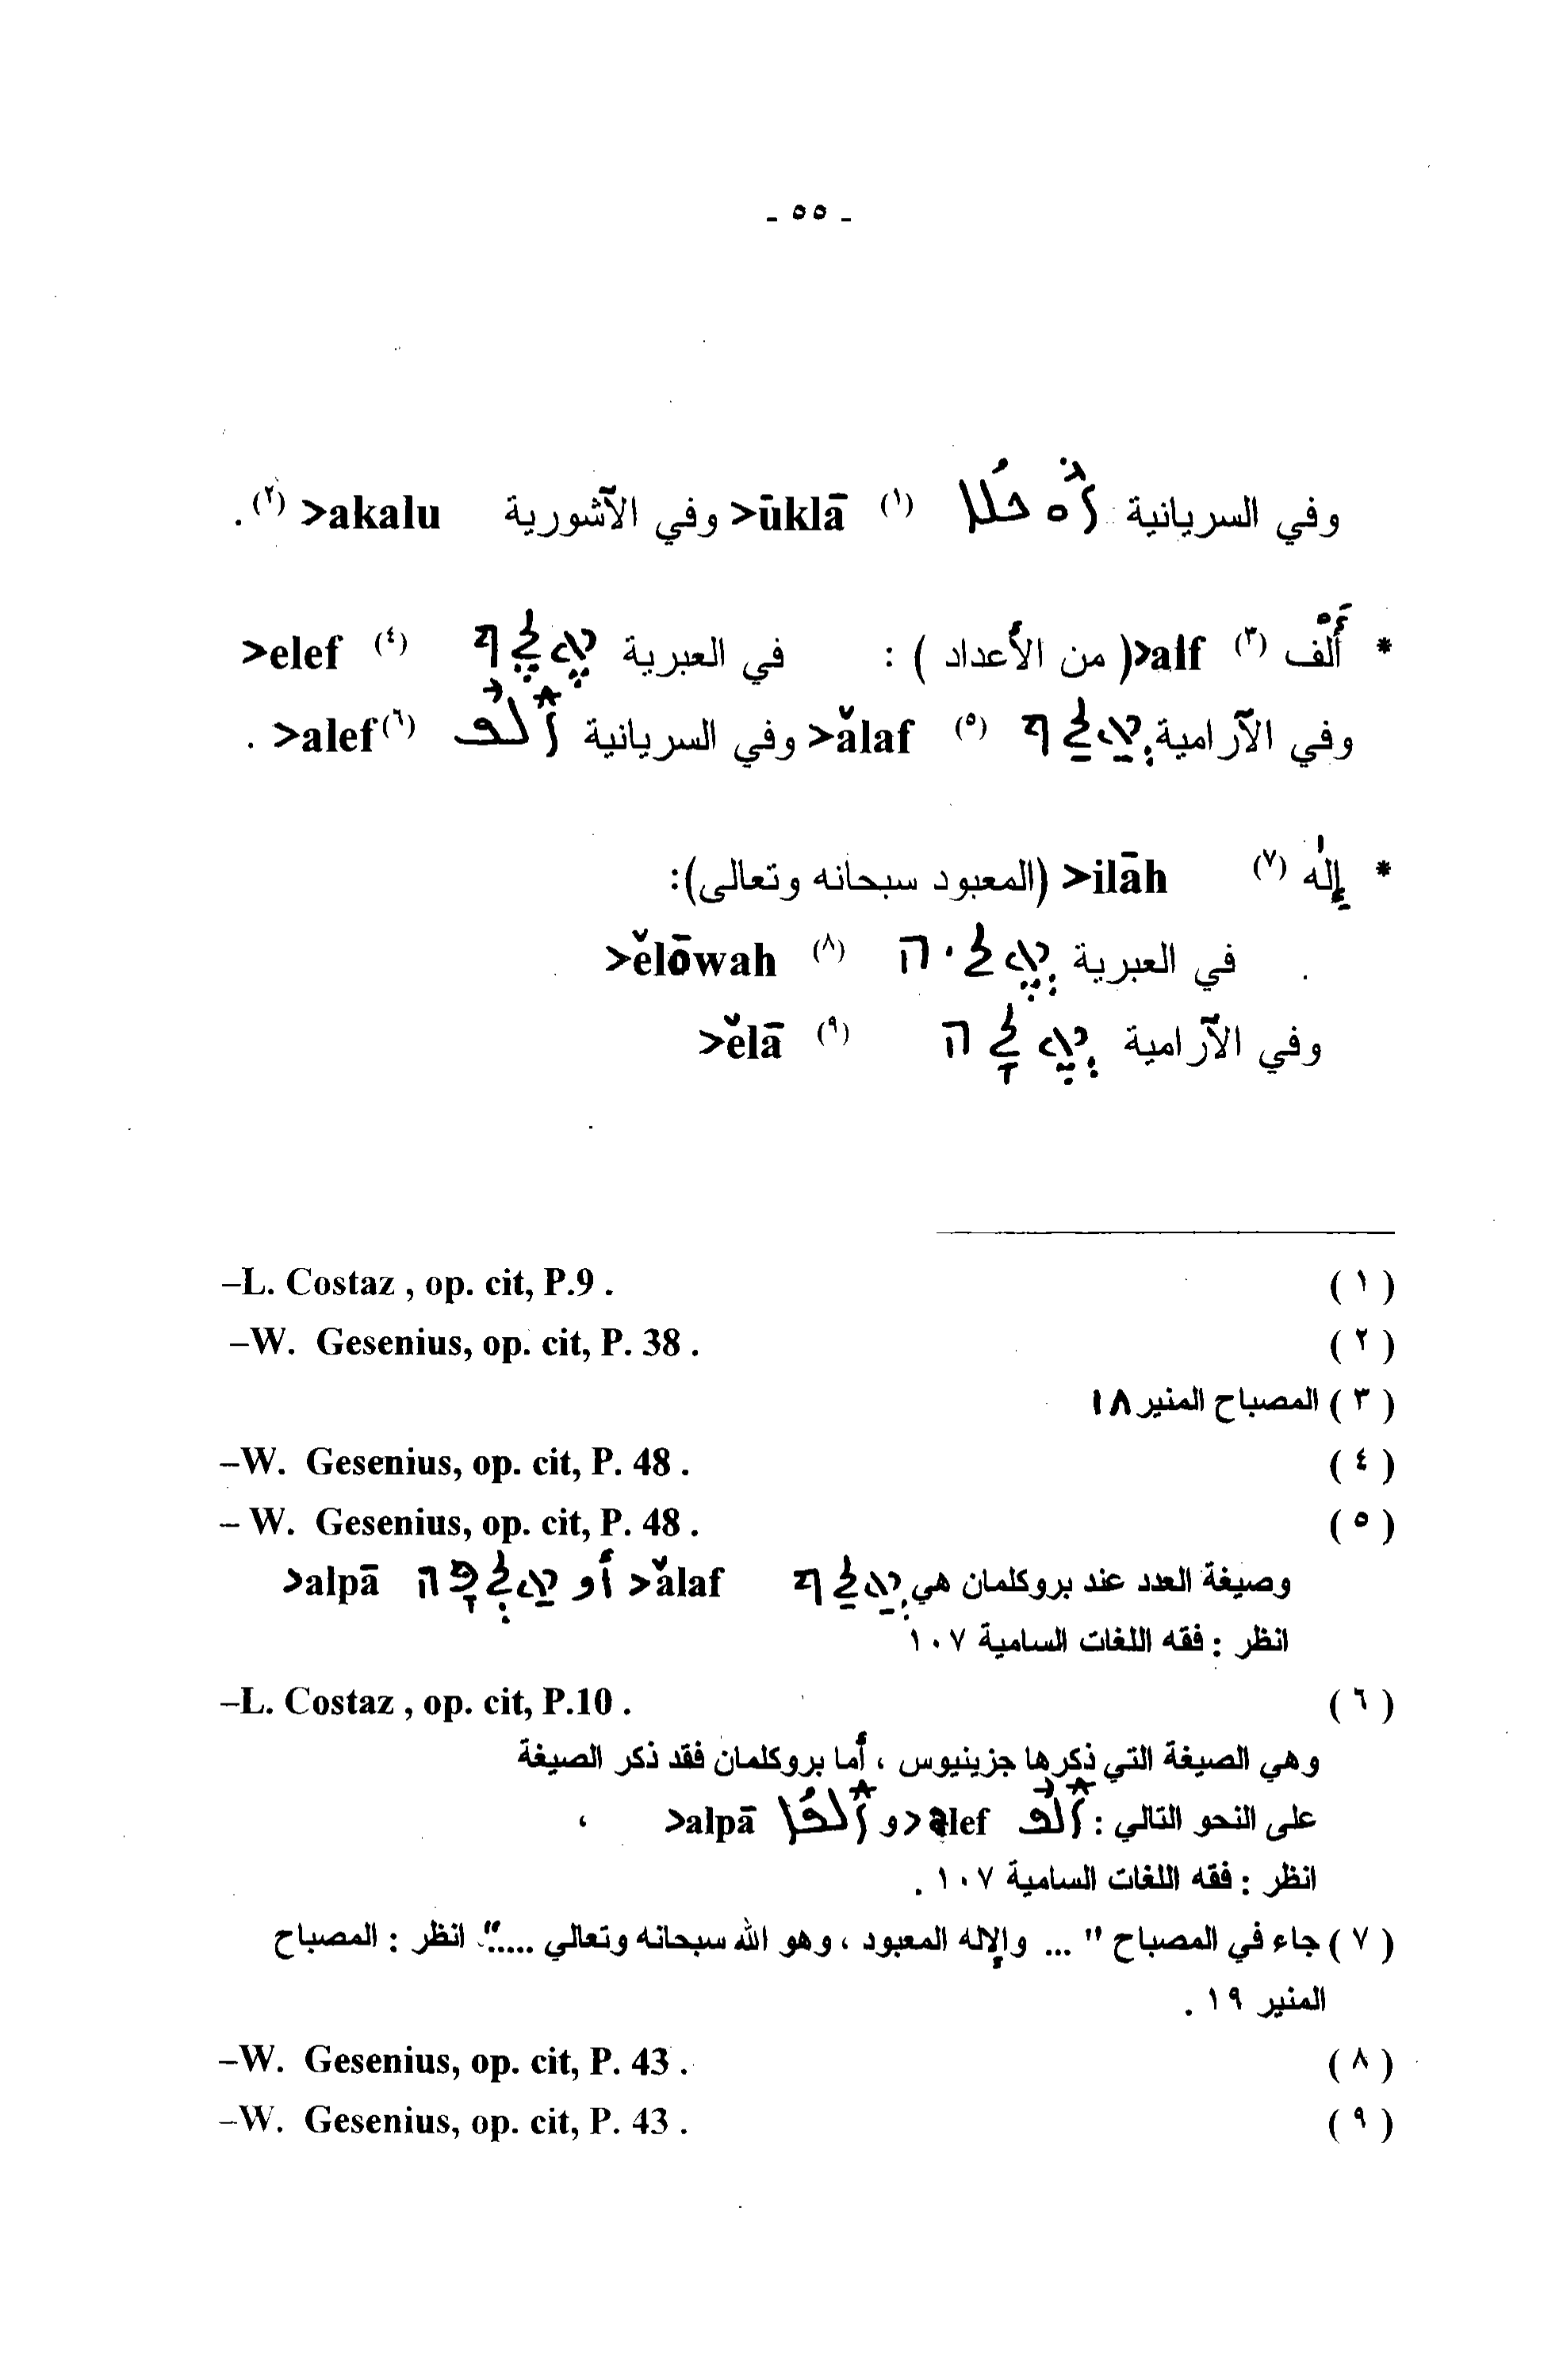 - ٥٥ -
وفي السريانية ܐܘܟܠܐ (١) >ūklā وفي الآشورية >akalu (٢) .
* أَلْف (٣) >alf (من الأعداد ) : في العبرية אֶלֶף (٤) >elef
وفي الآرامية אֲלַף (٥) >ǎlaf وفي السريانية ܐܠܦ (٦) >alef .
* إِلٰه (٧) >ilāh (المعبود سبحانه وتعالى):
في العبرية (٨) >ělōwah
وفي الآرامية אֱלָה (٩) >ělā
(١) –L. Costaz , op. cit, P.9 .
(٢) –W. Gesenius, op. cit, P. 38 .
(٣) المصباح المنير ١٨
(٤) –W. Gesenius, op. cit, P. 48 .
(٥) – W. Gesenius, op. cit, P. 48 .
وصيغة العدد عند بروكلمان هي אֲלַף >ǎlaf أو אַלְפָּה >alpā
انظر : فقه اللغات السامية ١٠٧
(٦) –L. Costaz , op. cit, P.10 .
وهي الصيغة التي ذكرها جزينيوس ، أما بروكلمان فقد ذكر الصيغة
على النحو التالي : ܐܠܦ >alef و ܐܠܦܐ >alpā ،
انظر : فقه اللغات السامية ١٠٧ .
(٧) جاء في المصباح " ... والإله المعبود ، وهو الله سبحانه وتعالي ....." انظر : المصباح
المنير ١٩ .
(٨) –W. Gesenius, op. cit, P. 43 .
(٩) –W. Gesenius, op. cit, P. 43 .